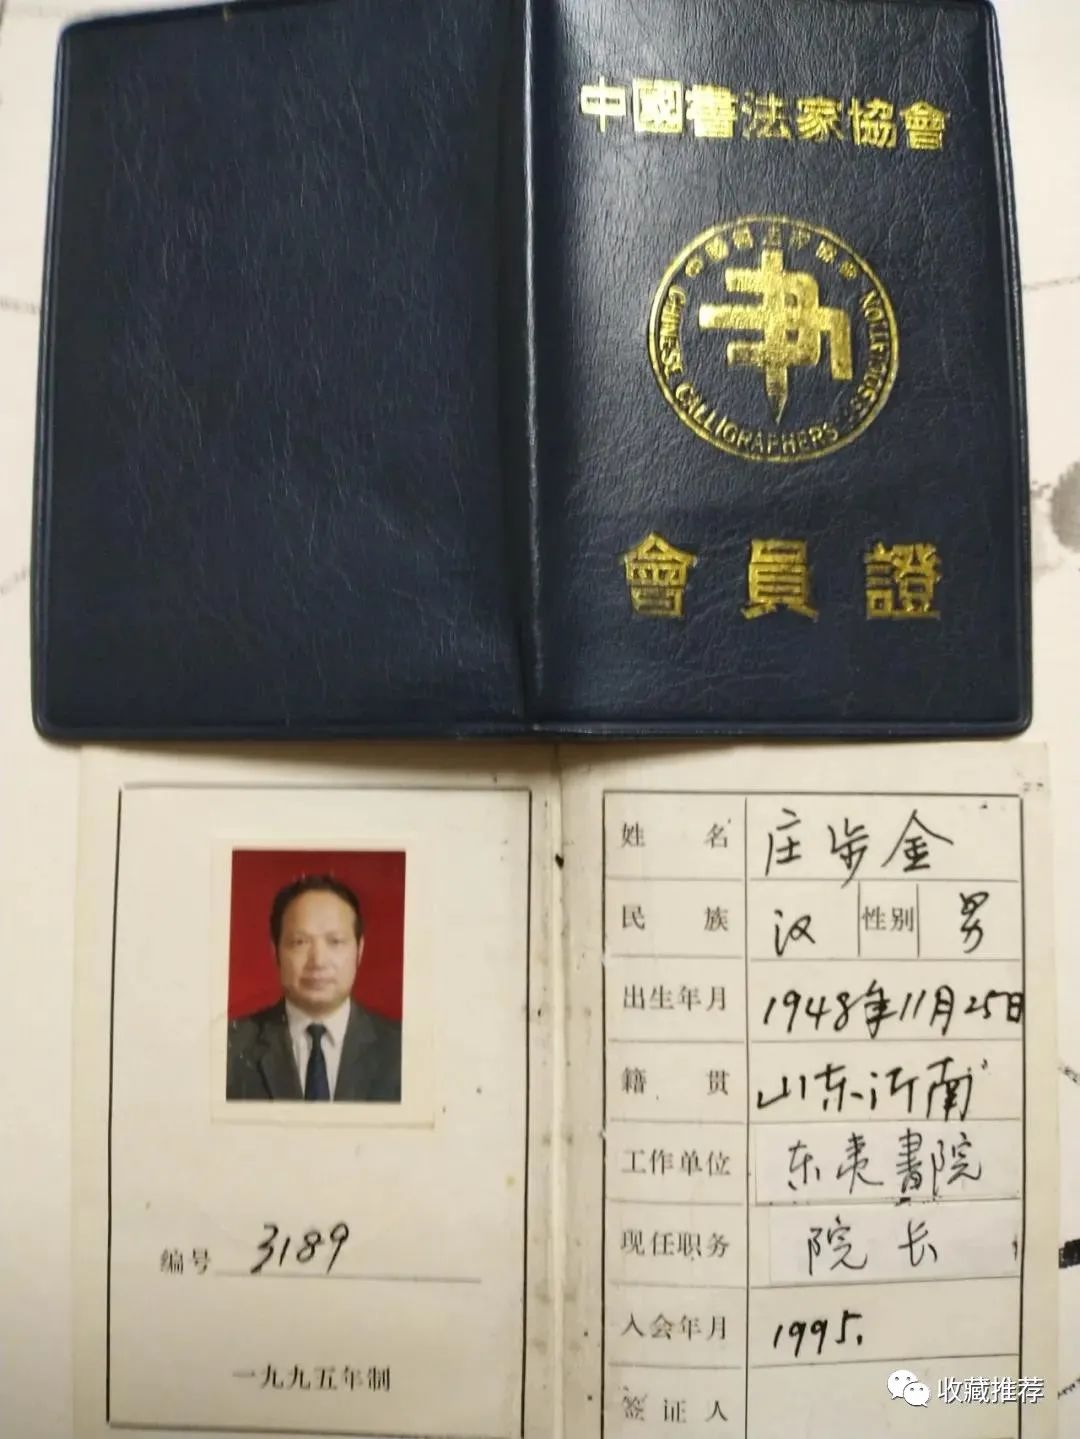 中國書法家協會
中國書法家協會
CHINESE CALLIGRAPHERS ASSOCIATION
會員證
姓名 庄步金
民族 汉 性别 男
出生年月 1948年11月25日
籍贯 山东沂南
工作单位 东夷書院
现任职务 院长
入会年月 1995.
签证人
编号 3189
一九九五年制
收藏推荐